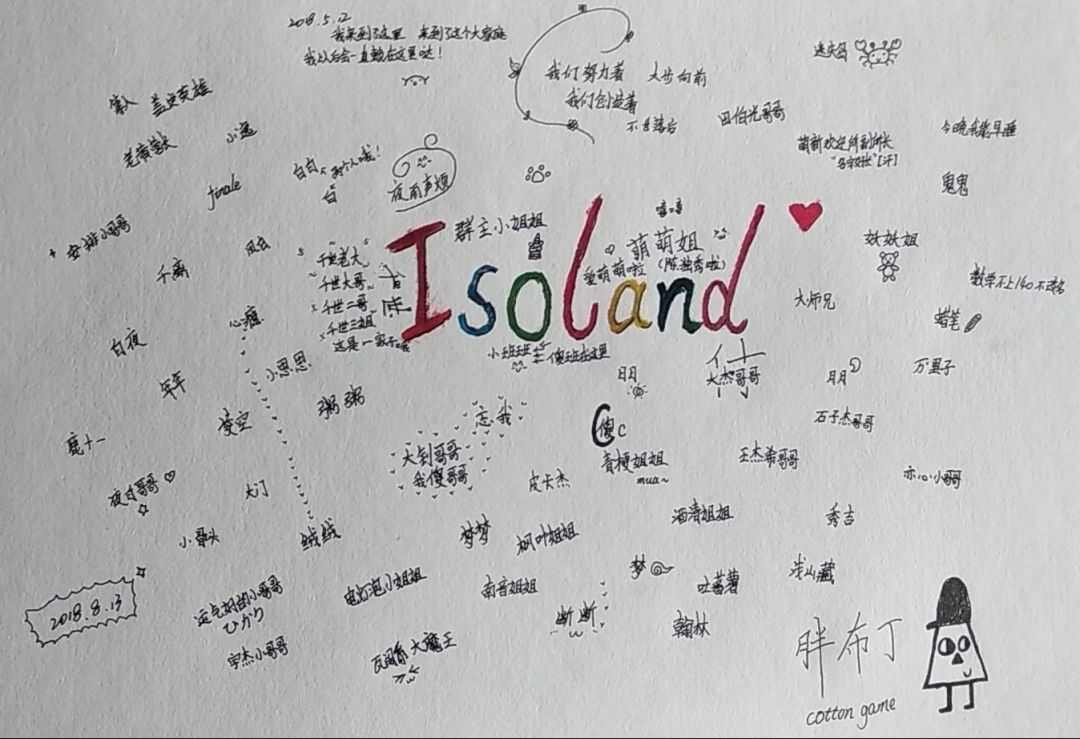 2018.5.12
我来到了这里 来到了这个大家庭
我以后会一直赖在这里哒！
我们努力着 大步向前
我们创造着
不甘落后
迷失岛
盖世英雄
小逸
田伯光哥哥
萌新欢迎所副所长
今晚我能早睡
鬼鬼
finale
白白
白
夜雨声烦
安排小哥哥
千裔
千世老大
千世大哥
千世二哥
千世三姐
这是一家子哦
群主小姐姐
嘻嘻
萌萌姐
爱萌萌啦 (陈独秀啦)
Isoland
妖妖姐
大师兄
数学不上140不改名
蜡笔
白夜
心瘾
小班班主
傻班在这里
年年
小恩恩
粥粥
凌空
鹿十一
忘我
大剑哥哥
我傻哥哥
明
大杰哥哥
明
万里子
石子杰哥哥
傻C
青梗姐姐
mua~
王杰希哥哥
亦心小哥哥
夜白哥哥
大门
皮卡杰
小骨头
绒绒
梦梦
枫叶姐姐
洒清姐姐
秀吉
2018.8.13
运气封的小哥哥
ひかり
电灯泡小姐姐
南音姐姐
梦
吐蕃薯
浅山藏
宇杰小哥哥
瓦阁斯大魔王
断断
翰林
胖布丁
cotton game